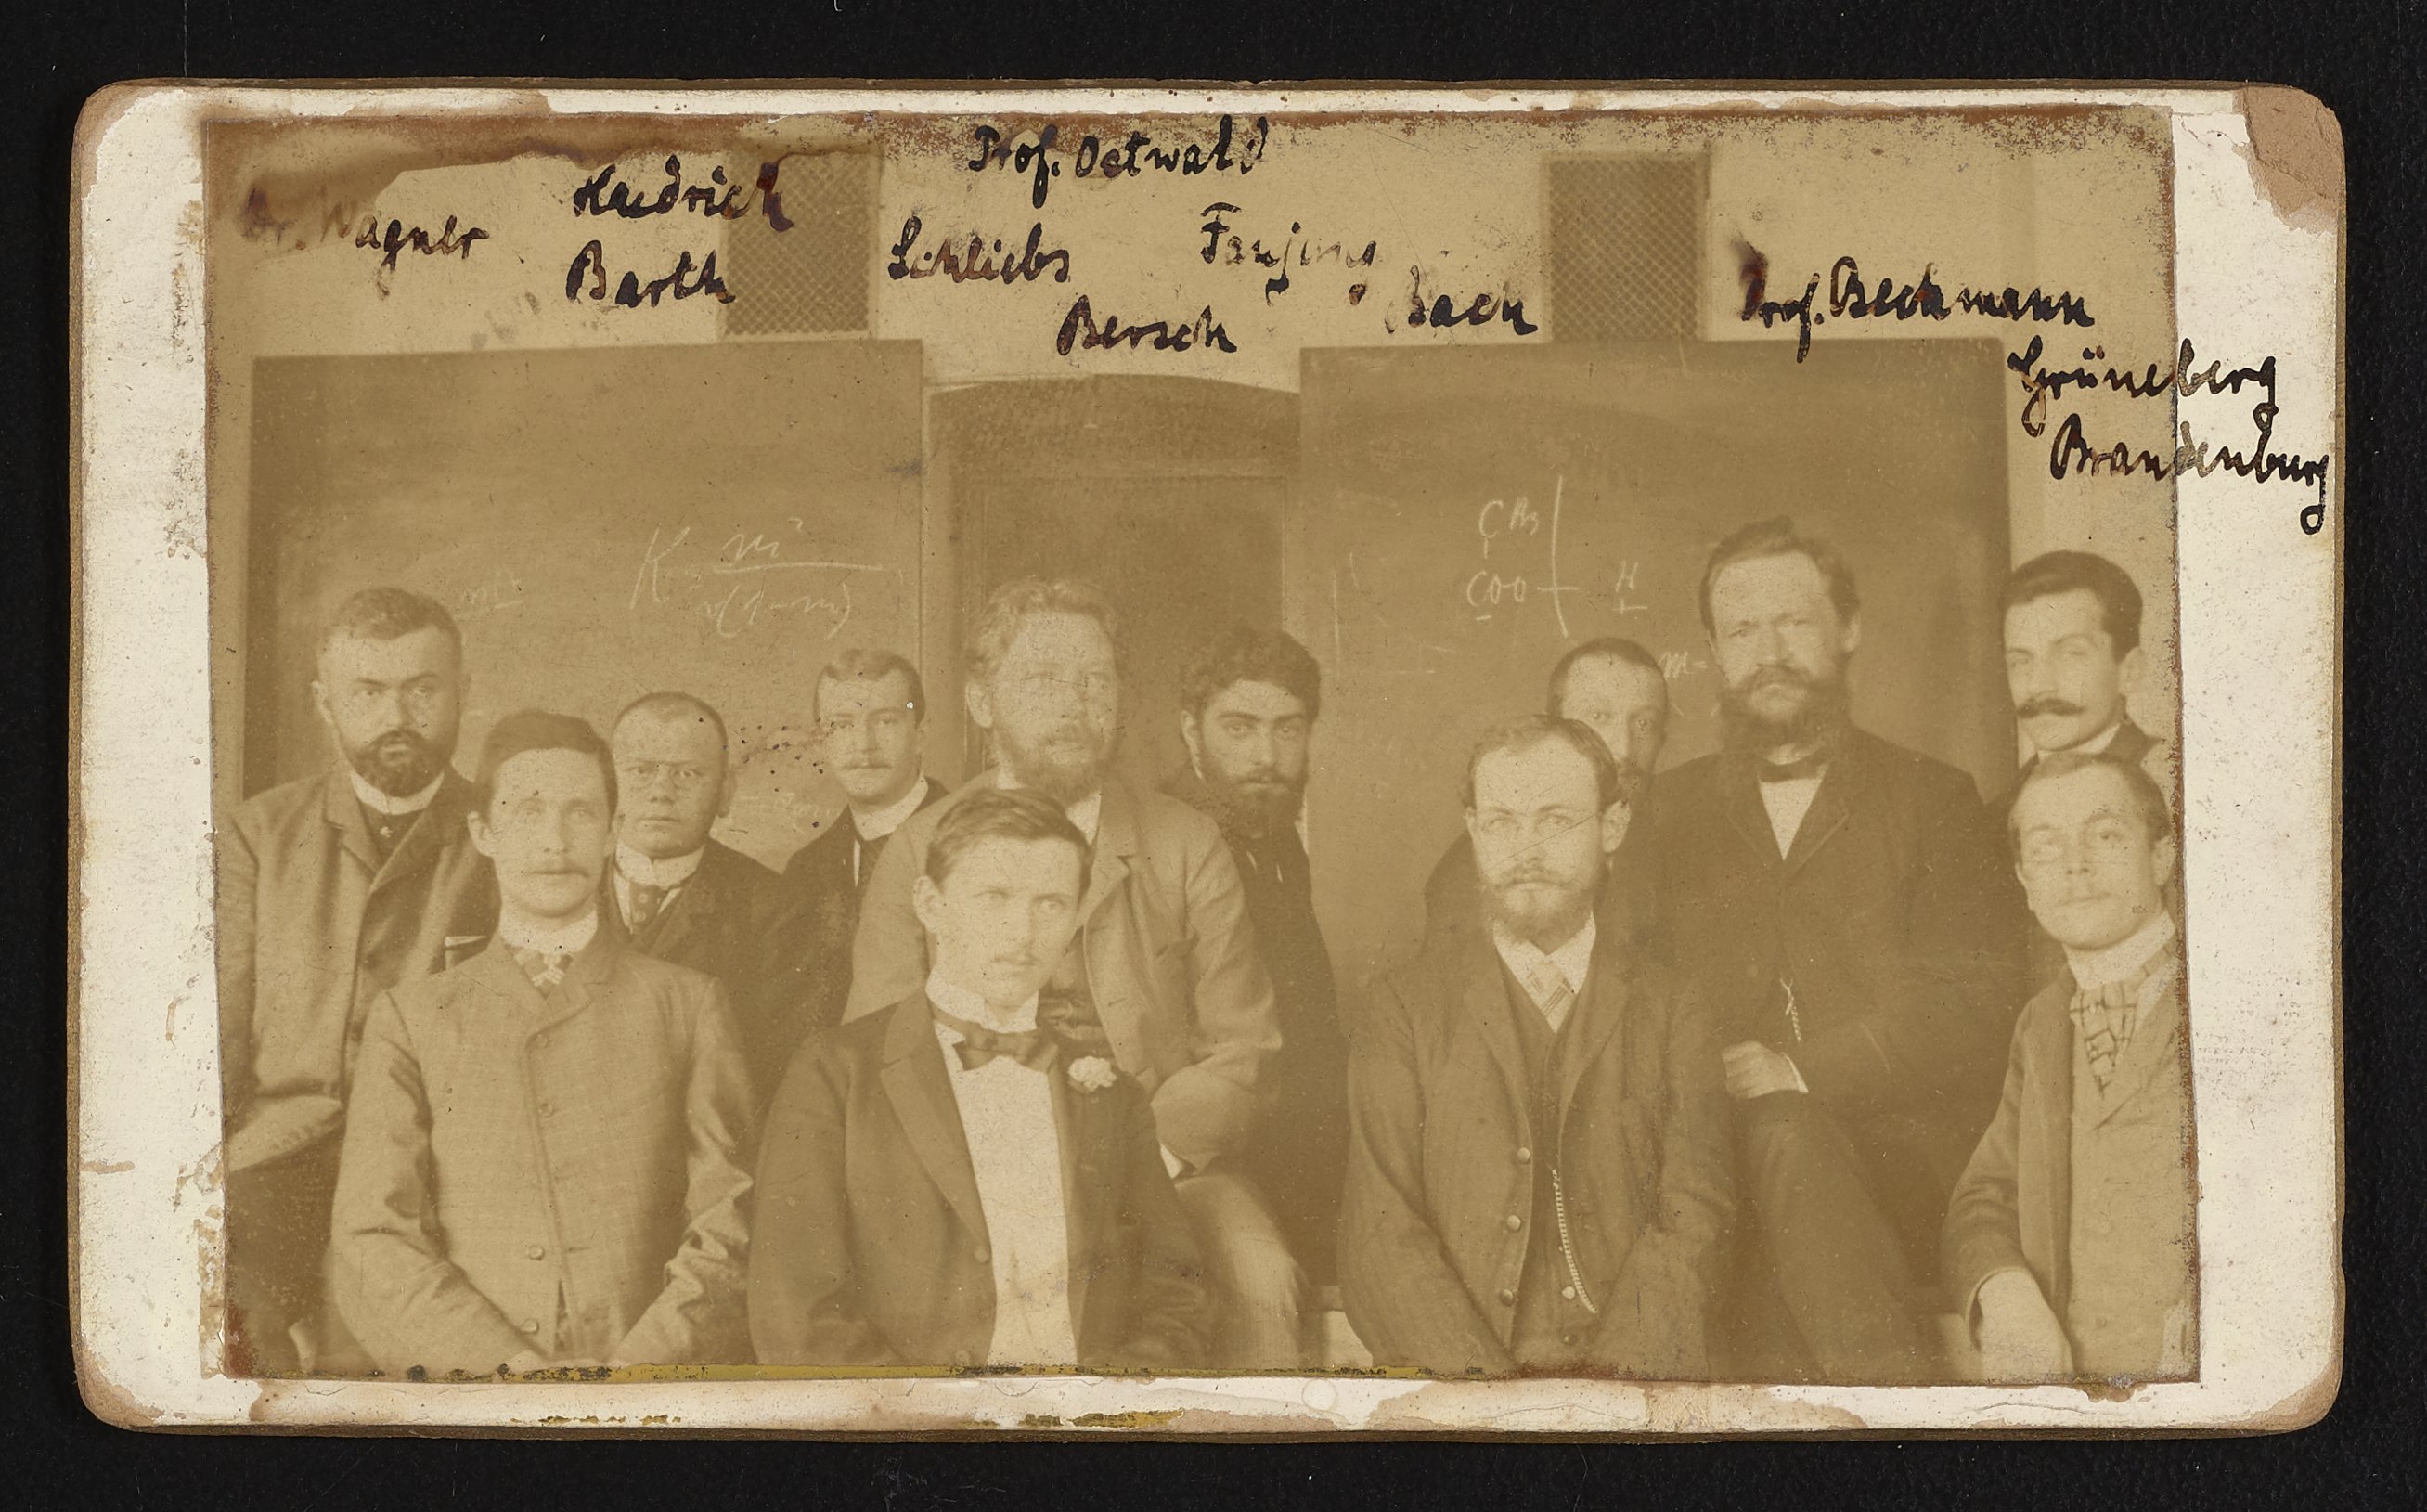 Prof. Ostwald
Dr. Wagner
Haedrich
Barth
Schliebs
Fanjung
Bersch
Bach
Prof. Beckmann
Grüneberg
Brandenburg
K = m²
v(1-m)
CH₃
COO H
m=